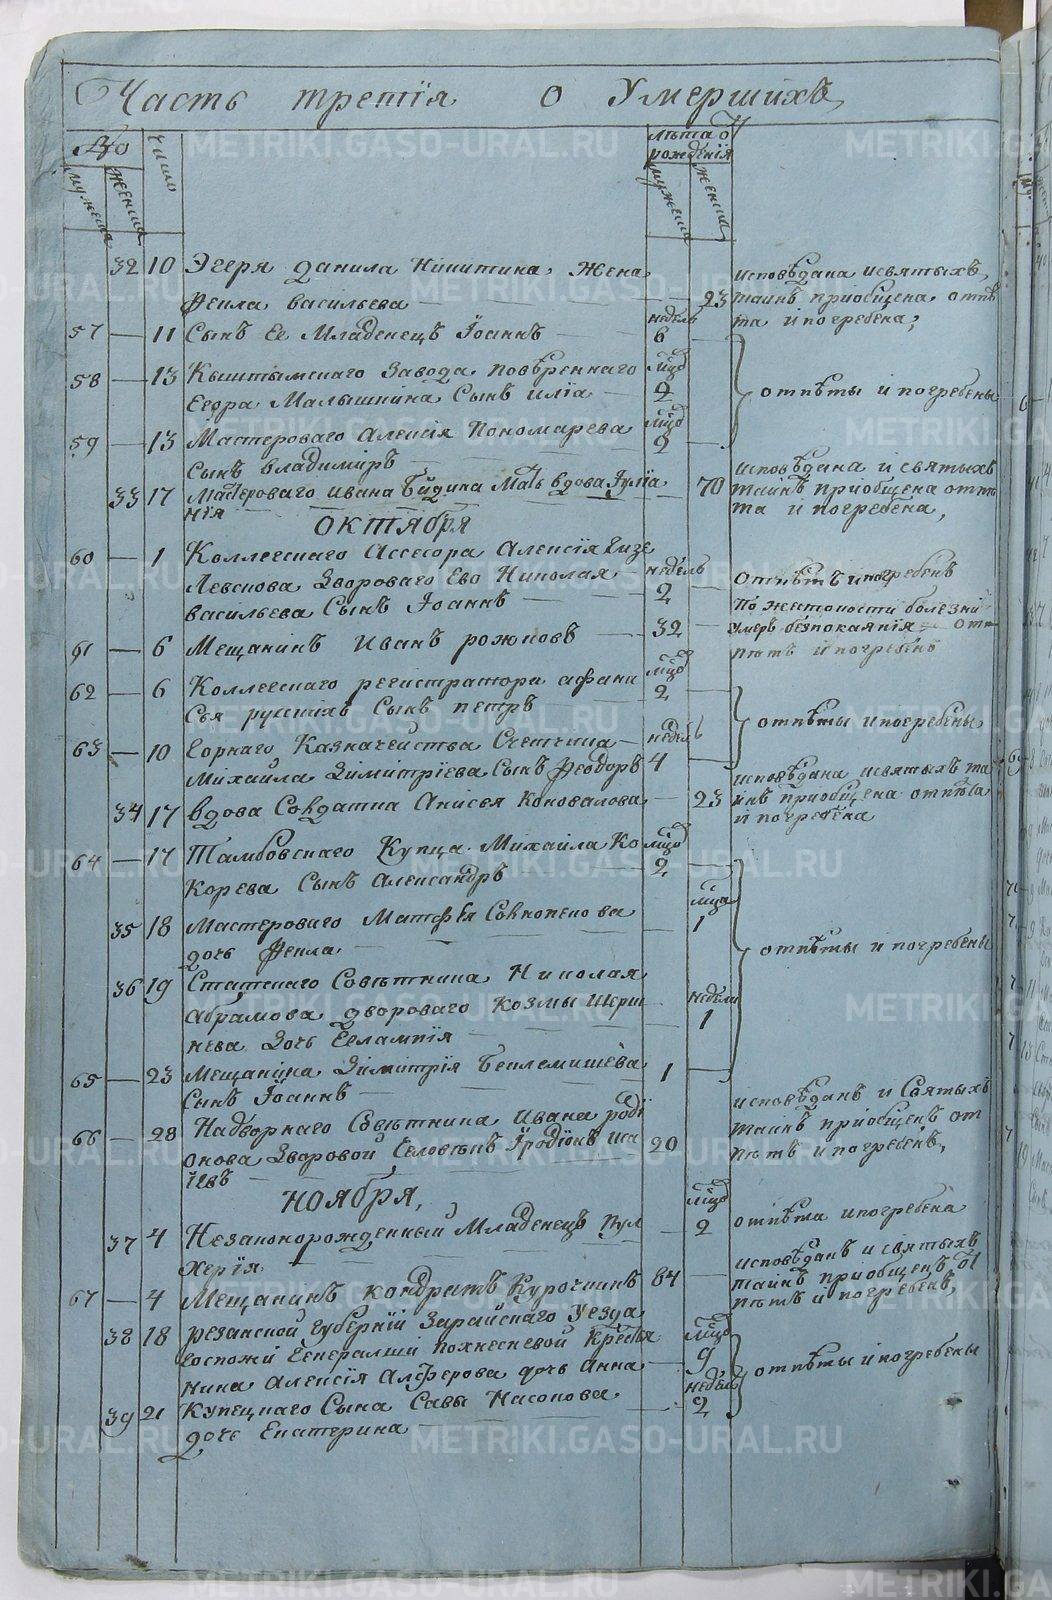 Часть третія о Умершихъ
№
мужеска
женска
число
лѣта отъ
рожденія
мужеска
женска
32 10 Эгеря Данила Никитина Жена
Фекла васильева 23
исповѣдана исвятыхъ
таинъ приобщена отпѣ
та и погребена;
57 11 Сынъ Ее Младенецъ Іоаннъ
недель
6
58 13 Кыштымскаго Завода повѣреннаго
Егора Малышкина Сынъ илія
мсцо
2
отпѣты и погребены
59 13 Мастероваго Алексія Пономарева
Сынъ владимиръ
мсцо
2
33 17 Мастероваго ивана Мать вдова Іулiа
нія 70
исповѣдана и святыхъ
таинъ приобщена отпѣ
та и погребена,
ОКТЯБРЯ
60 1 Коллегскаго Ассесора Алексія
Дворового Ево Николая
васильева Сынъ Іоаннъ
недель
2
Отпѣтъ ипогребенъ
61 6 Мещанинъ Иванъ рожковъ 32
По жестокости болезни
умеръ безпокаянія отп
пѣтъ и погребенъ
62 6 Коллегскаго регистратора афана
сья русскихъ Сынъ петръ
мсцо
2
отпѣты ипогребены
63 10 Горнаго Казначейства Счетчика
Михайла Димитріева Сынъ Феодоръ
недель
4
34 17 вдова Солдатка Анисья Коновалова 23
исповѣдана исвятыхъ та
инъ приобщена отпѣта
и погребена
64 17 Тамбовскаго Купца Михайла Ко
Корева Сынъ Александръ
мсцо
2
35 18 Мастероваго Матфея
дочь Фекла
мсца
1
отпѣты и погребены
36 19 Статскаго Совѣтника Николая
Абрамова двороваго Козмы Шерш
нева Дочь Евлампія
недели
1
65 23 Мещанина Димитрія Беклемишева
Сынъ Іоаннъ
1
66 28 Надворнаго Совѣтника Ивана роді
онова Дворовой Человѣкъ Іродіонъ иса
іевъ 20
исповѣданъ и Святыхъ
таинъ приобщенъ от
пѣтъ и погребенъ,
НОЯБРЯ,
37 4 Незаконорожденный Младенецъ Пул
Херія
мсцо
2
отпѣта ипогребена
67 4 Мещанинъ Кондратъ Курочкинъ 84
исповѣданъ и святыхъ
таинъ приобщенъ от
пѣтъ и погребенъ,
38 18 резанской Губерніи Зарайскаго Уезда
Госпожи Генеральши Крестья
нина Алексія Алферова дочь Анна
мсцо
9
отпѣты и погребены
39 21 Купецкаго Сына Савы Насонова
дочь Екатерина
недель
2
METRIKI.GASO-URAL.RU